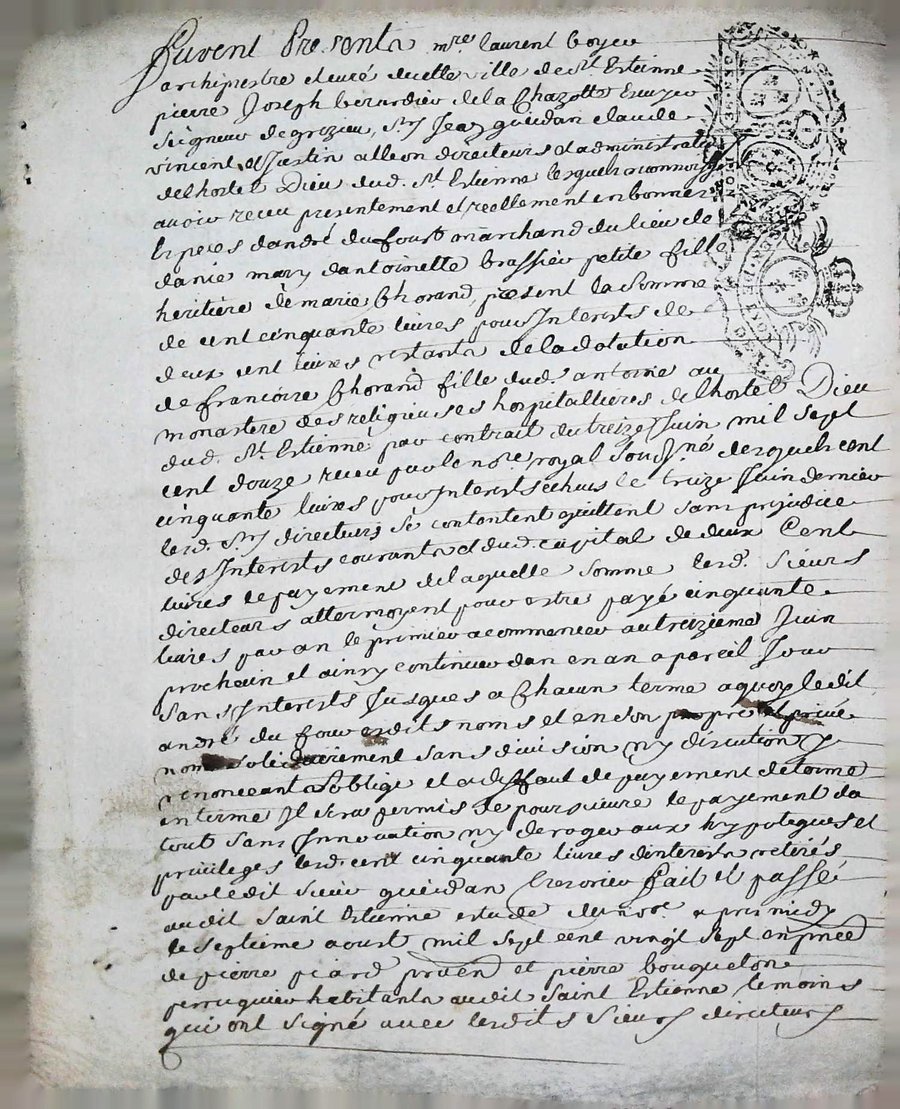 Furent Presents mre. laurent boyer
archiprestre et curé de cette ville de st. Estienne
pierre Joseph bernardieu de la Chazotte Escuyer
seigneur de grezieu, srs Jean gueidan claude
vincent et Justin alleon directeurs et administrateurs
de lhostel Dieu dud. st. Estienne lesquels reconnoissent
avoir receu presentement et reellement en bonnes
especes dandré dufour marchand du lieu de
mary dantoinette brassieu petite fille
heritiere de marie Chorand, present la somme
de cent cinquante livres pour Interests de
deux cent livres restants de la dotation
de francoise Chorand fille dud. antoine au
monastere des religieuses hospitallieres de lhostel Dieu
dud. st. Estienne par contrait du treize Juin mil sept
cent douze receu par le nore. royal soussné. desquels cent
cinquante livres pour Interests echus le treize Juin dernier
lesd. srs directeurs se contentent quittent sans prejudice
des Interests courants et dud. capital de deux Cent
livres le payement de laquelle somme lesd. sieurs
directeurs attermoyent pour estre payé cinquante
livres par an le premier a commencer au treizieme Juin
prochain et ainsy continuer dan en an a pareil Jour
sans Interests Jusques a Chacun terme a quoy ledit
andré du four esdits noms et en son propre et privé
nom solidairement sans division ny discution y
renonceant soblige et a deffaut de payement de terme
en terme Il sera permis de poursuivre le payement du
tout sans Innovation ny deroger aux hypoteques et
privileges lesd. cent cinquante livres dinterests retirés
par ledit sieur gueidan tresorier Fait et passé
audit saint Estienne estude du nore. apres midy
le septieme aoust mil sept cent vingt sept en pnce
de pierre picard praen et pierre bouqueton
perruquier habitants audit saint Estienne temoins
qui ont signé avec lesdits sieurs directeurs